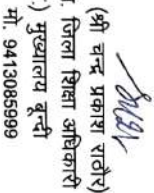 (श्री चन्द्र प्रकाश राठौर)
. जिला शिक्षा अधिकारी
:) मुख्यालय बून्दी
मो. 9413085999